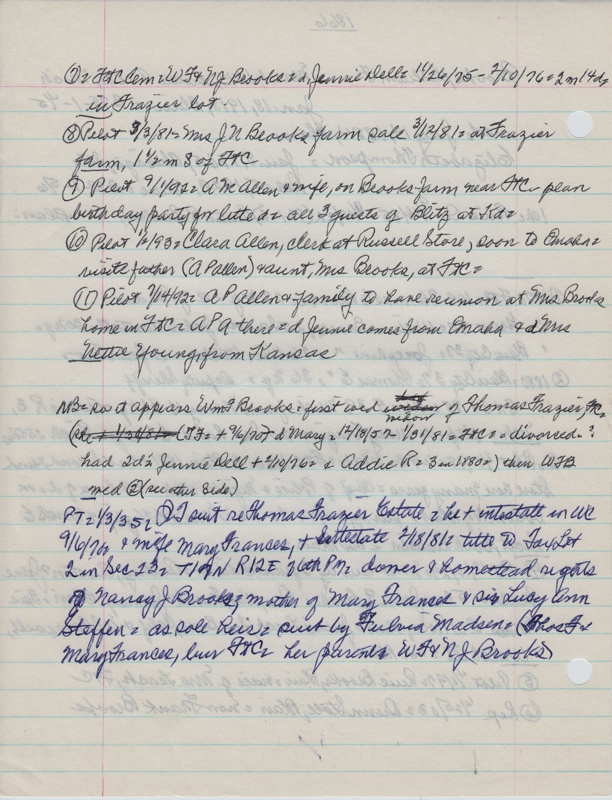 ⑦ = FtC Cem = WF & NJ Brooks = d, Jennie Dell = 11/26/75 - 2/10/76 = 2m 14ds
in Frazier lot -
⑧ Pilot 3/3/81 = Mrs J N Brooks farm sale 3/12/81 = at Frazier
farm, 1 1/2 m S of FtC
⑨ Pilot 9/1/92 = A M Allen & wife, on Brooks farm near FtC - plan
birthday party for little d = all 3 guests of Blitz at Kd =
⑩ Pilot 1/6/93 = Clara Allen, clerk at Russell Store, soon to Omaha =
visits father (A P Allen) & aunt, Mrs Brooks, at FtC =
⑪ Pilot 7/14/92 = A P Allen & family to have reunion at Mrs Brooks
home in FtC = A P A there = d Jennie comes from Omaha & d Mrs
Nettie Young, from Kansas
NB = so it appears Wm F Brooks = first wed widow of Thomas Frazier, FtC
(TF = + 9/6/70) d Mary = 12/18/52 - 1/31/81 = FtC = divorced - ?
had 2 d's Jennie Dell + 2/10/76 = & Addie R = 3 in 1880 =) then WFB
med ② (see other side)
PT = 1/3/35 = Q T suit re Thomas Frazier Estate = he + intestate in WC
9/6/70 = & wife Mary Frances, + intestate 2/18/81 = title to Tax Lot
2 in Sec 23 = T19N R12E 6th PM = dower & homestead rights
of Nancy J Brooks = mother of Mary Frances & sis Lucy Ann
Steffen = as sole heirs = suit by Fulvia Madsen = (Thos F &
Mary Frances, bur FtC = her parents WF & NJ Brooks)